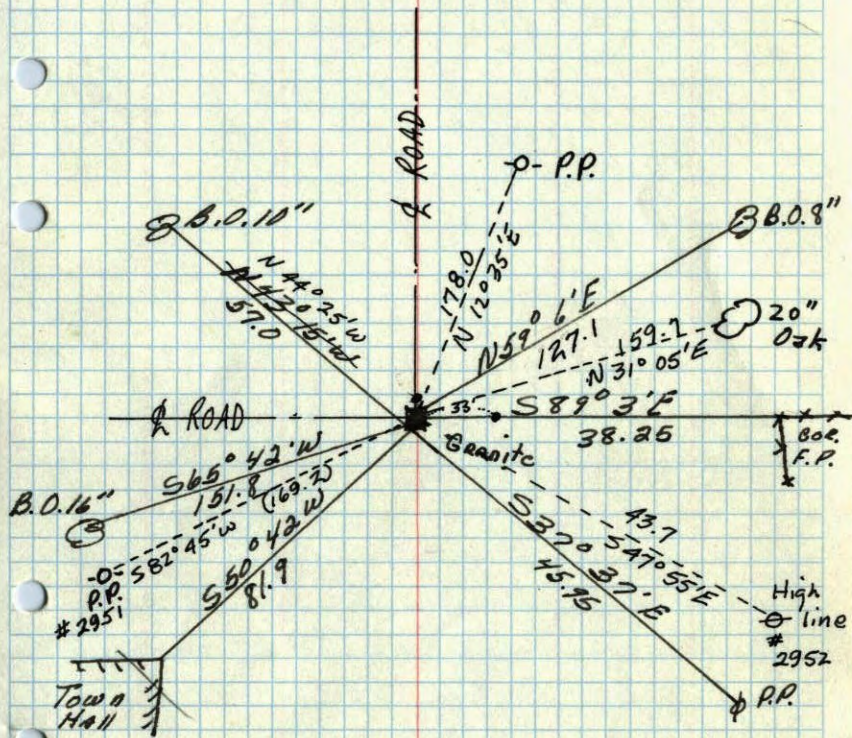 ℄ ROAD
-O- P.P.
B.O.10"
B.O.8"
N 44° 25' W
N 43° 15' W
57.0
178.0
N 12° 35' E
N59° 6' E
127.1
159.7
N 31° 05' E
20"
Oak
℄ ROAD
33
S 89° 3' E
38.25
Granite
COR.
F.P.
S65° 42' W
151.8
(169.2)
S82° 45' W
B.O.16"
P.P.
# 2951
S50° 42 W
81.9
43.7
S47° 55' E
S37° 37' E
45.95
High
line
#
2952
Town
Hall
P.P.